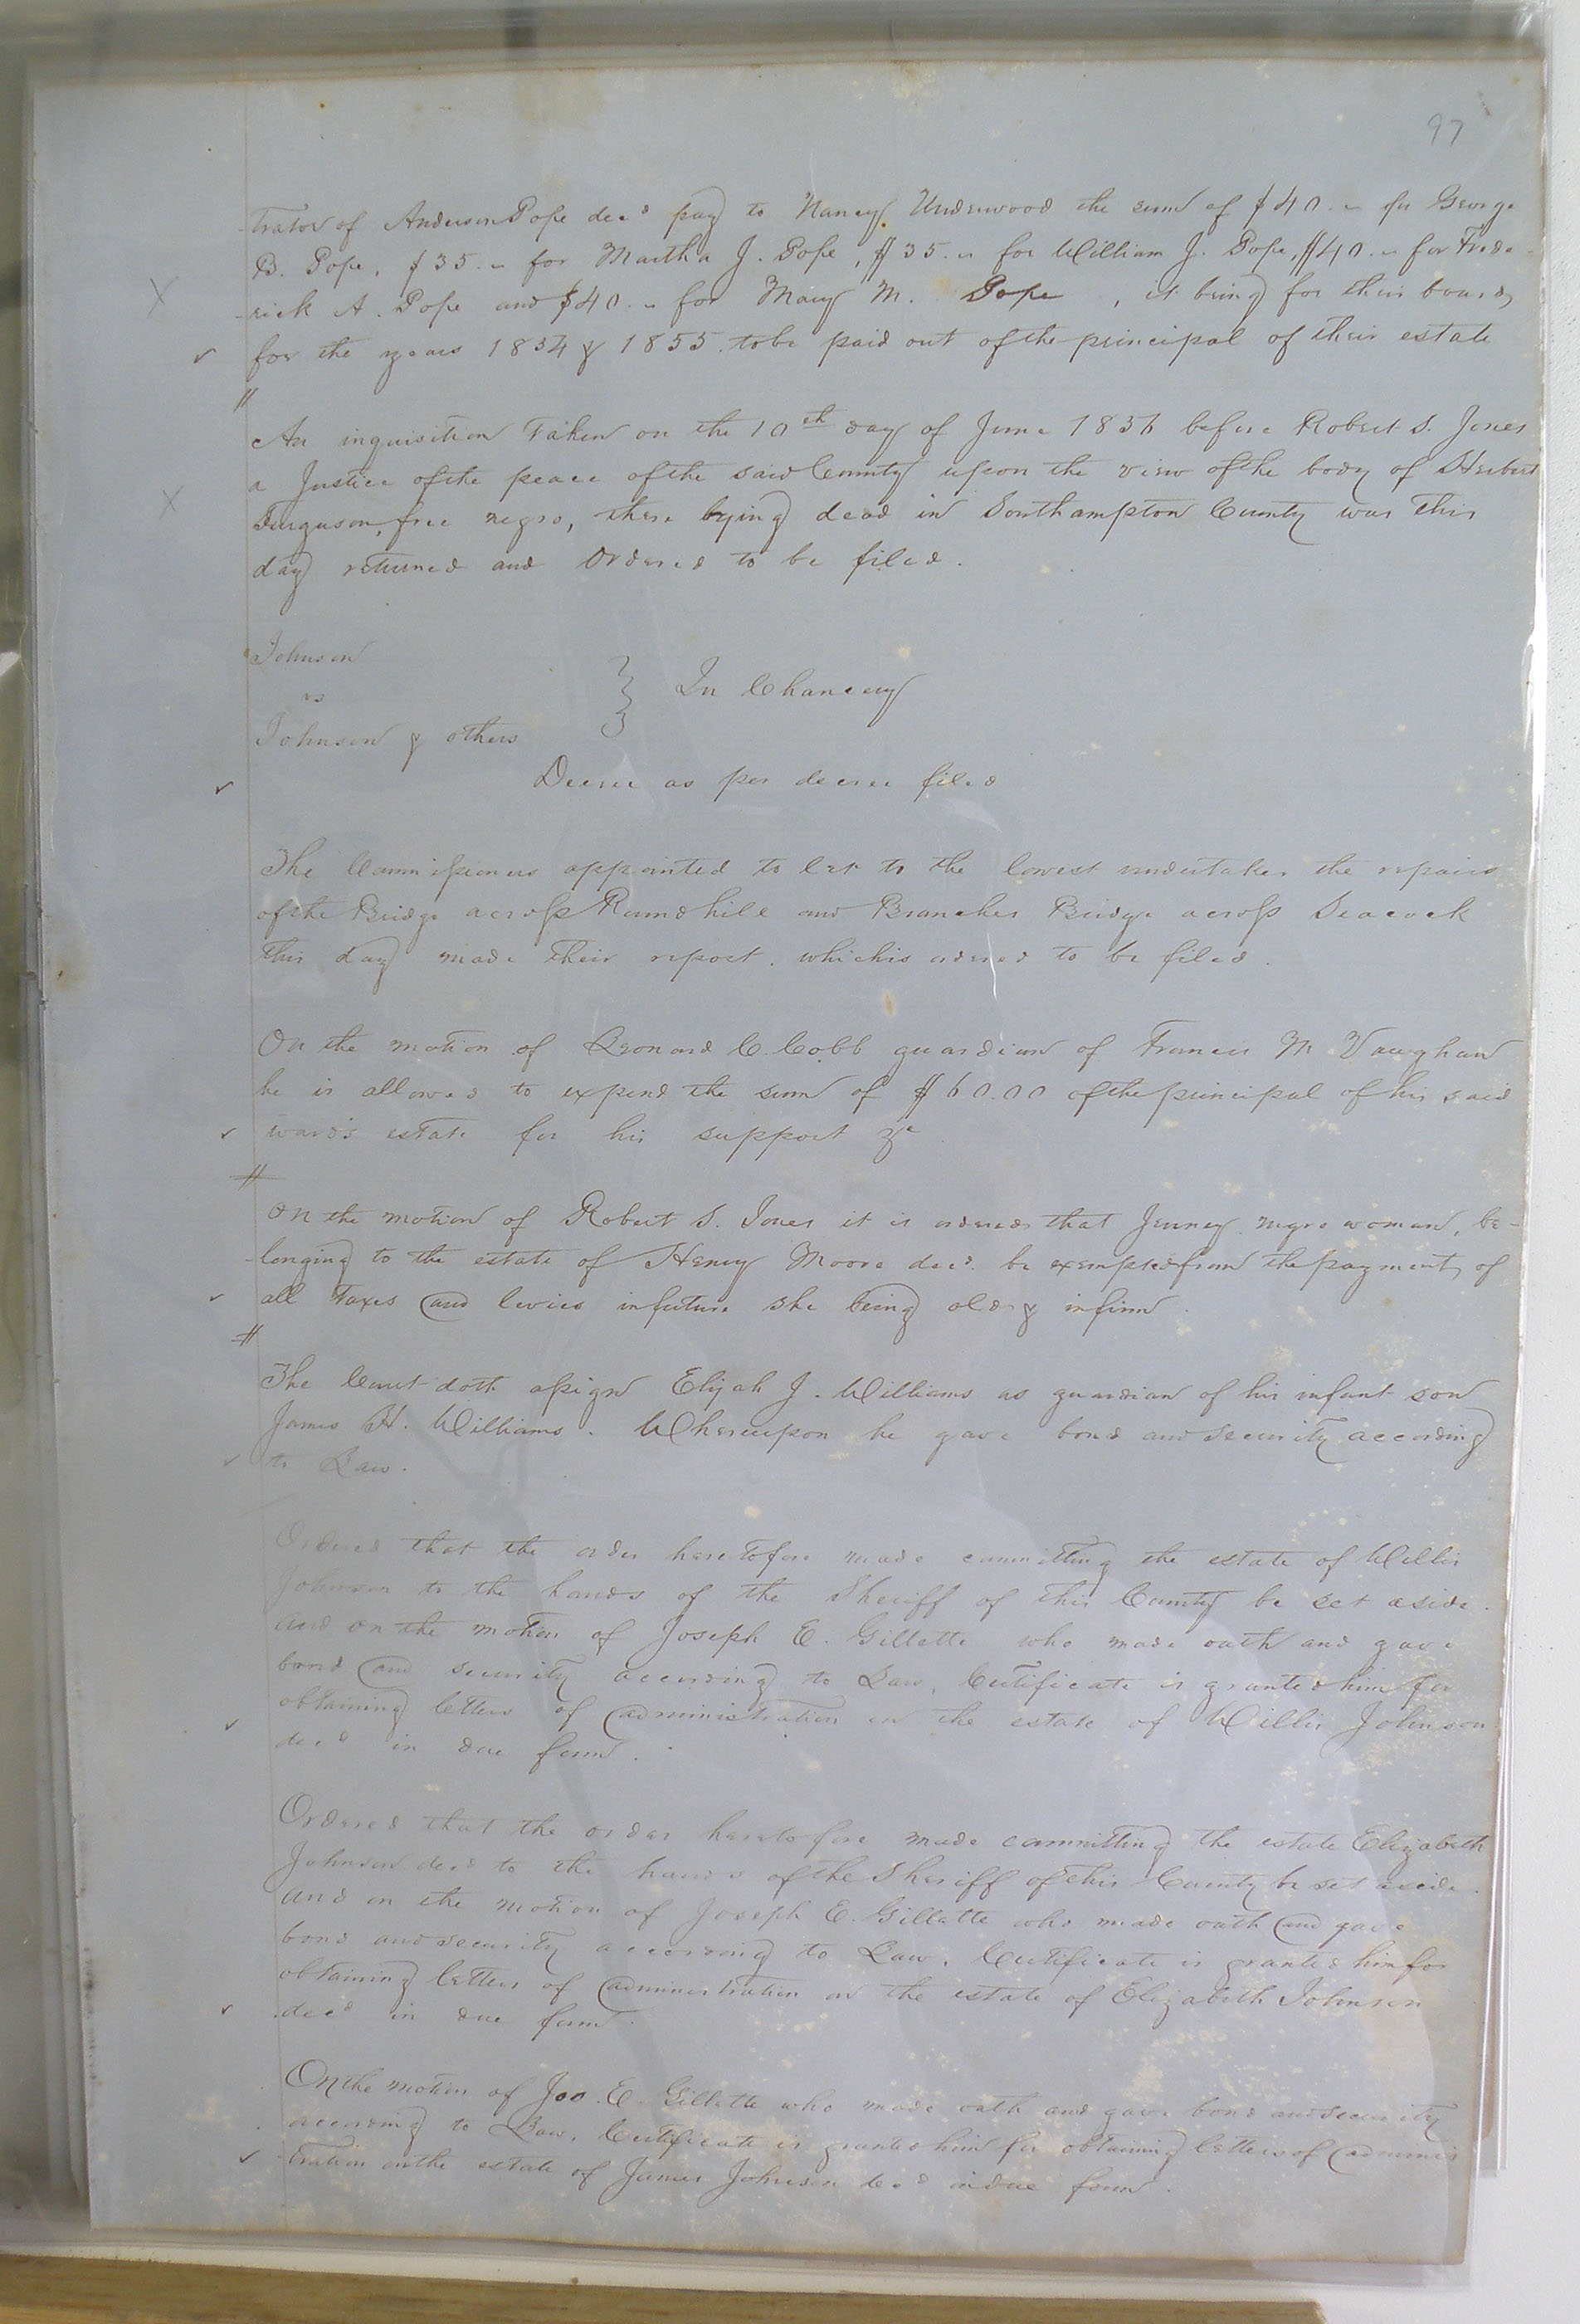 97
trator of Anderson Pope decd pay to Nancy Underwood the sum of $40.„ for George
B. Pope, $35.„ for Martha J. Pope, $35.„ for William J. Pope, $40.„ for Frede-
-rick A. Pope and $40.„ for Mary M. Pope , it being for their board,
for the years 1854 & 1855. to be paid out of the principal of their estate
An inquisition taken on the 10th day of June 1856 before Robert S. Jones
a Justice of the peace of the said County upon the view of the body of Herbert
Ferguson, free negro, there lying dead in Southampton County was this
day returned and ordered to be filed.
Johnson
vs
Johnson & others
} In Chancery
Decree as per decree filed
The Commissioners appointed to let to the lowest undertaker the repairs
of the Bridge across Roundhill and Branches Bridge across Seacock
this day made their report. which is ordered to be filed.
On the motion of Leonard C. Cobb guardian of Francis M Vaughan
he is allowed to expend the sum of $60.00 of the principal of his said
wards estate for his support &c
On the motion of Robert S. Jones it is ordered that Jenney negro woman, be-
-longing to the estate of Henry Moore decd. be exempted from the payment of
all taxes and levies in future she being old & infirm.
The Court doth assign Elijah J. Williams as guardian of his infant son
James H. Williams. Whereupon he gave bond and security according
to Law.
Ordered that the order heretofore made committing the estate of Willis
Johnson to the hands of the Sheriff of this County be set aside.
and on the motion of Joseph E. Gillette who made oath and gave
bond and security according to Law, Certificate is granted him for
obtaining letters of administration on the estate of Willis Johnson
decd in due form.
Ordered that the order heretofore made committing the estate Elizabeth
Johnson decd to the hands of the Sheriff of this County be set aside.
and on the motion of Joseph E. Gillette who made oath and gave
bond and security according to Law. Certificate is granted him for
obtaining letters of administration on the estate of Elizabeth Johnson
decd in due form.
On the motion of Jos. E. Gillette who made oath and gave bond and security
according to Law. Certificate is granted him for obtaining letters of adminis
tration on the estate of James Johnson decd in due form.